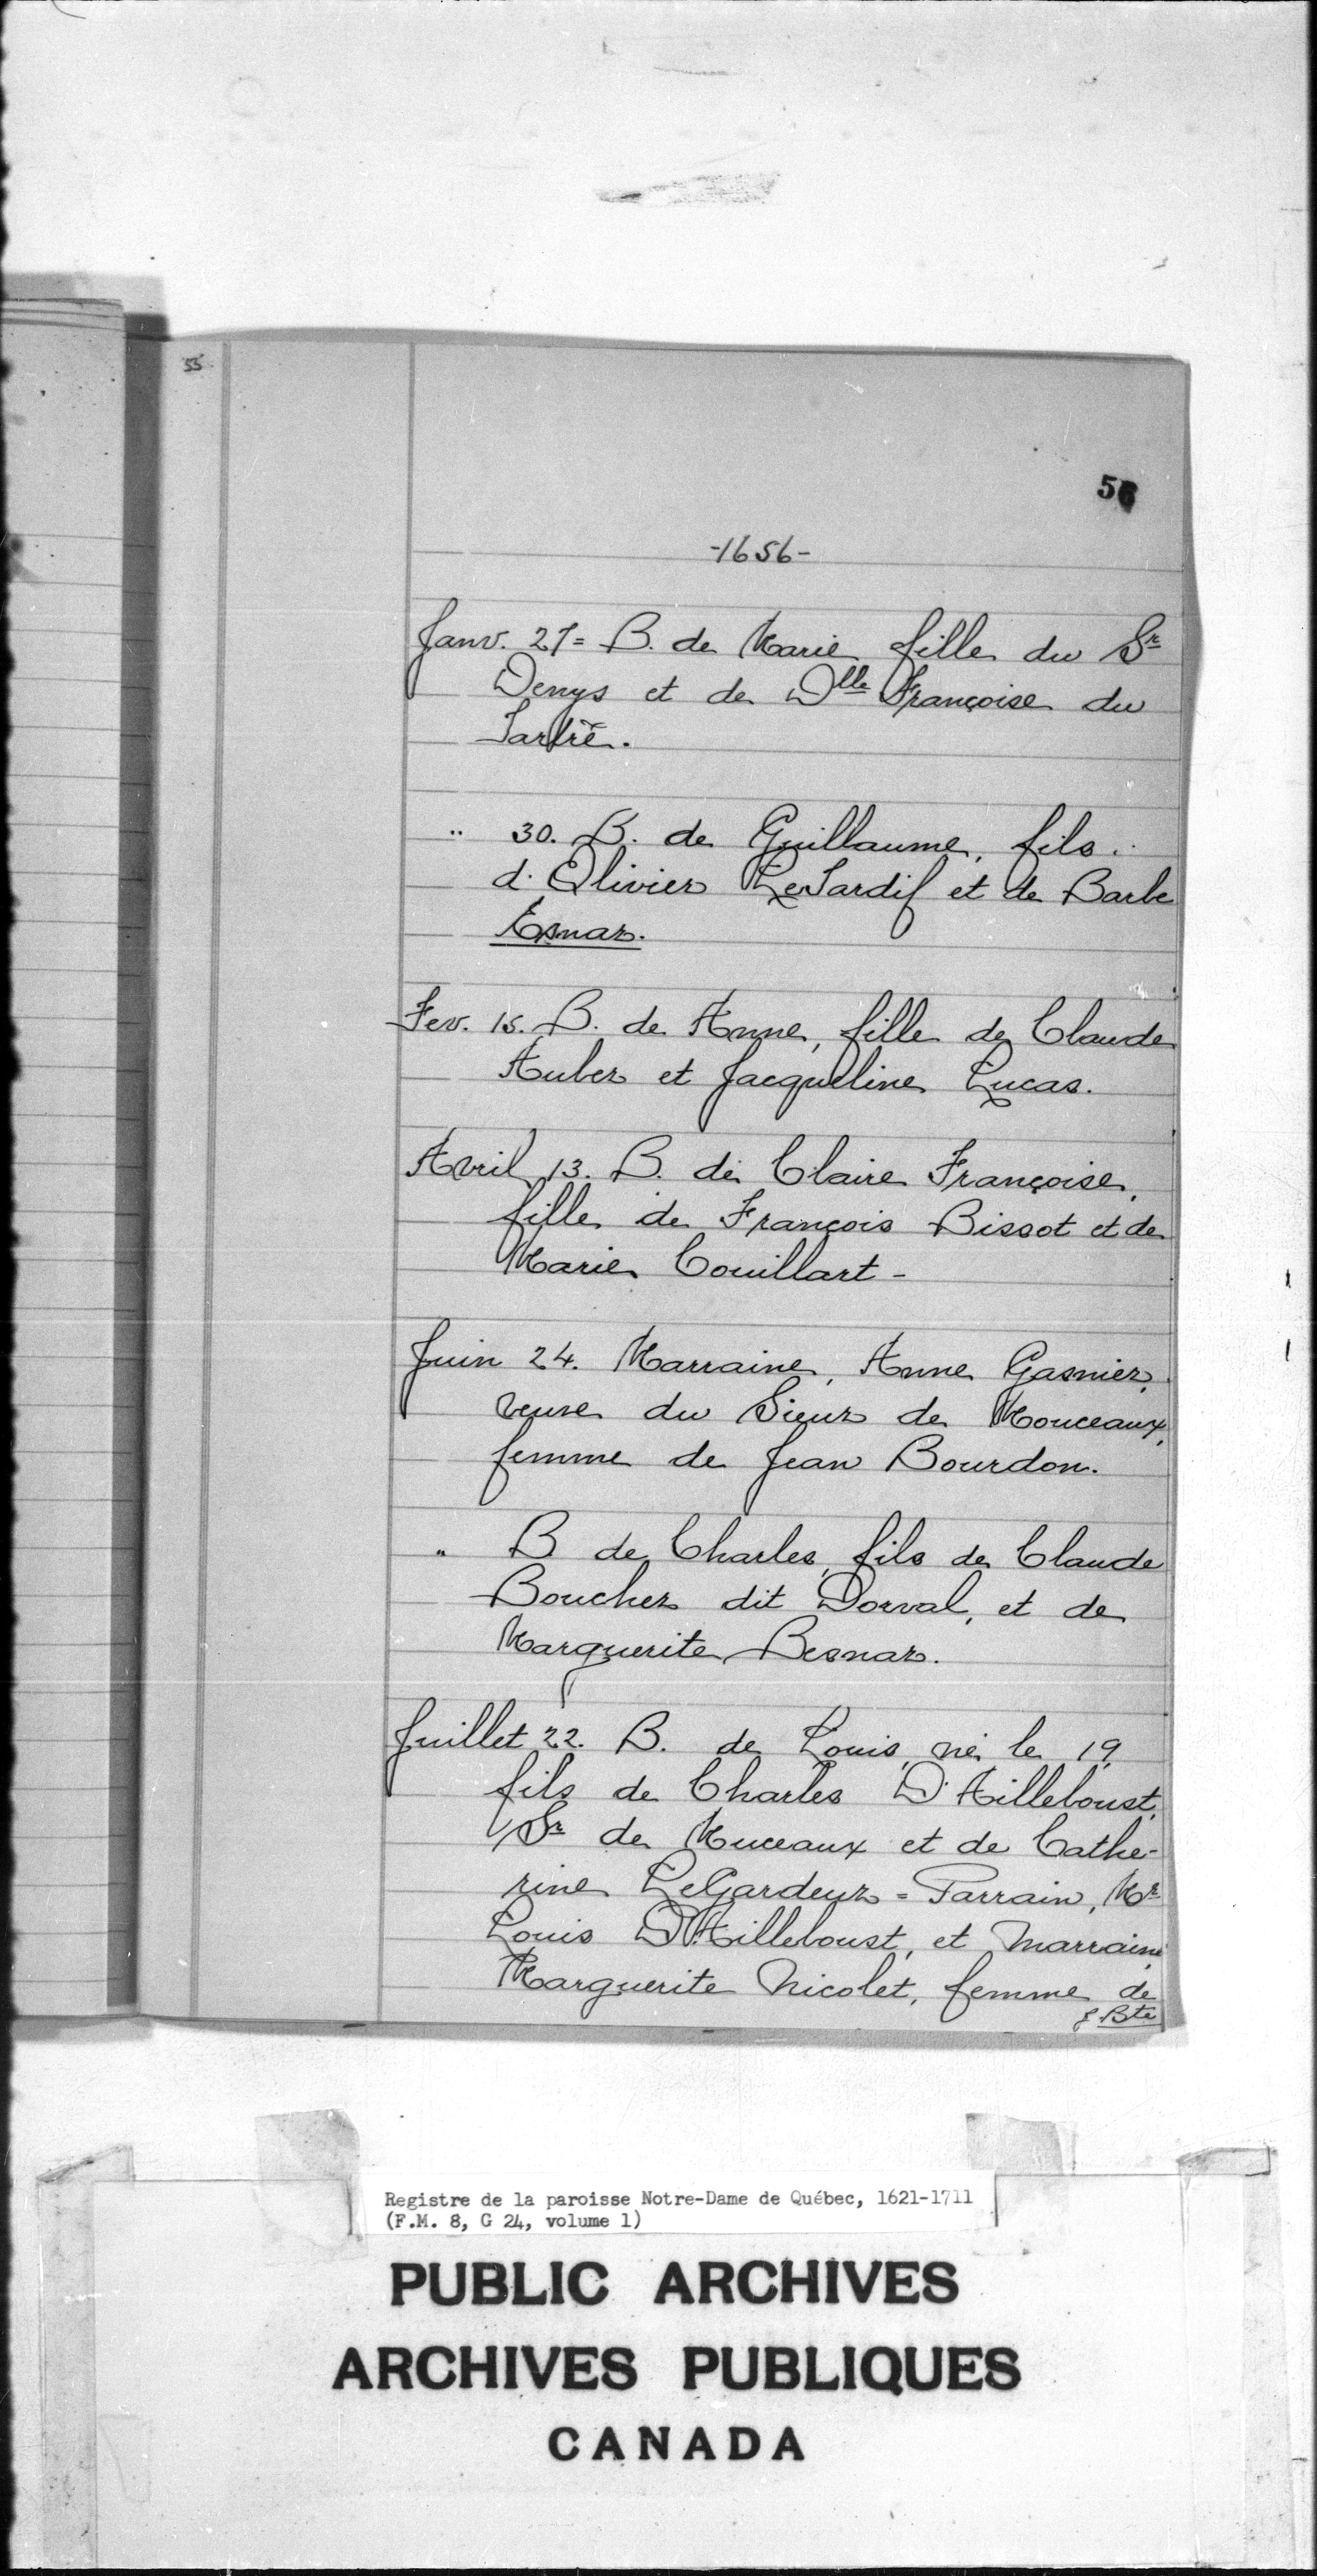 55
56
-1656-
Janv. 27= B. de Marie fille du Sr
Denys et de Dlle Françoise du
Tartre.
" 30. B. de Guillaume, fils.
d'Olivier LeTardif et de Barbe
Esmar.
Fev. 15. B. de Anne, fille de Claude
Auber et Jacqueline Lucas.
Avril 13. B. de Claire Françoise,
fille de François Bissot et de
Marie Couillart -
Juin 24. Marraine, Anne Gasnier,
veuve du Sieur de Mouceaux,
femme de Jean Bourdon.
" B de Charles, fils de Claude
Boucher dit Dorval, et de
Marguerite Besnar.
Juillet 22. B. de Louis, né le 19,
fils de Charles D'Ailleboust,
Sr de Muceaux et de Cathe-
rine LeGardeur = Parrain, Mr
Louis D'Ailleboust, et Marraine
Marguerite Nicolet, femme de
J-Bte
Registre de la paroisse Notre-Dame de Québec, 1621-1711
(F.M. 8, G 24, volume 1)
PUBLIC ARCHIVES
ARCHIVES PUBLIQUES
CANADA